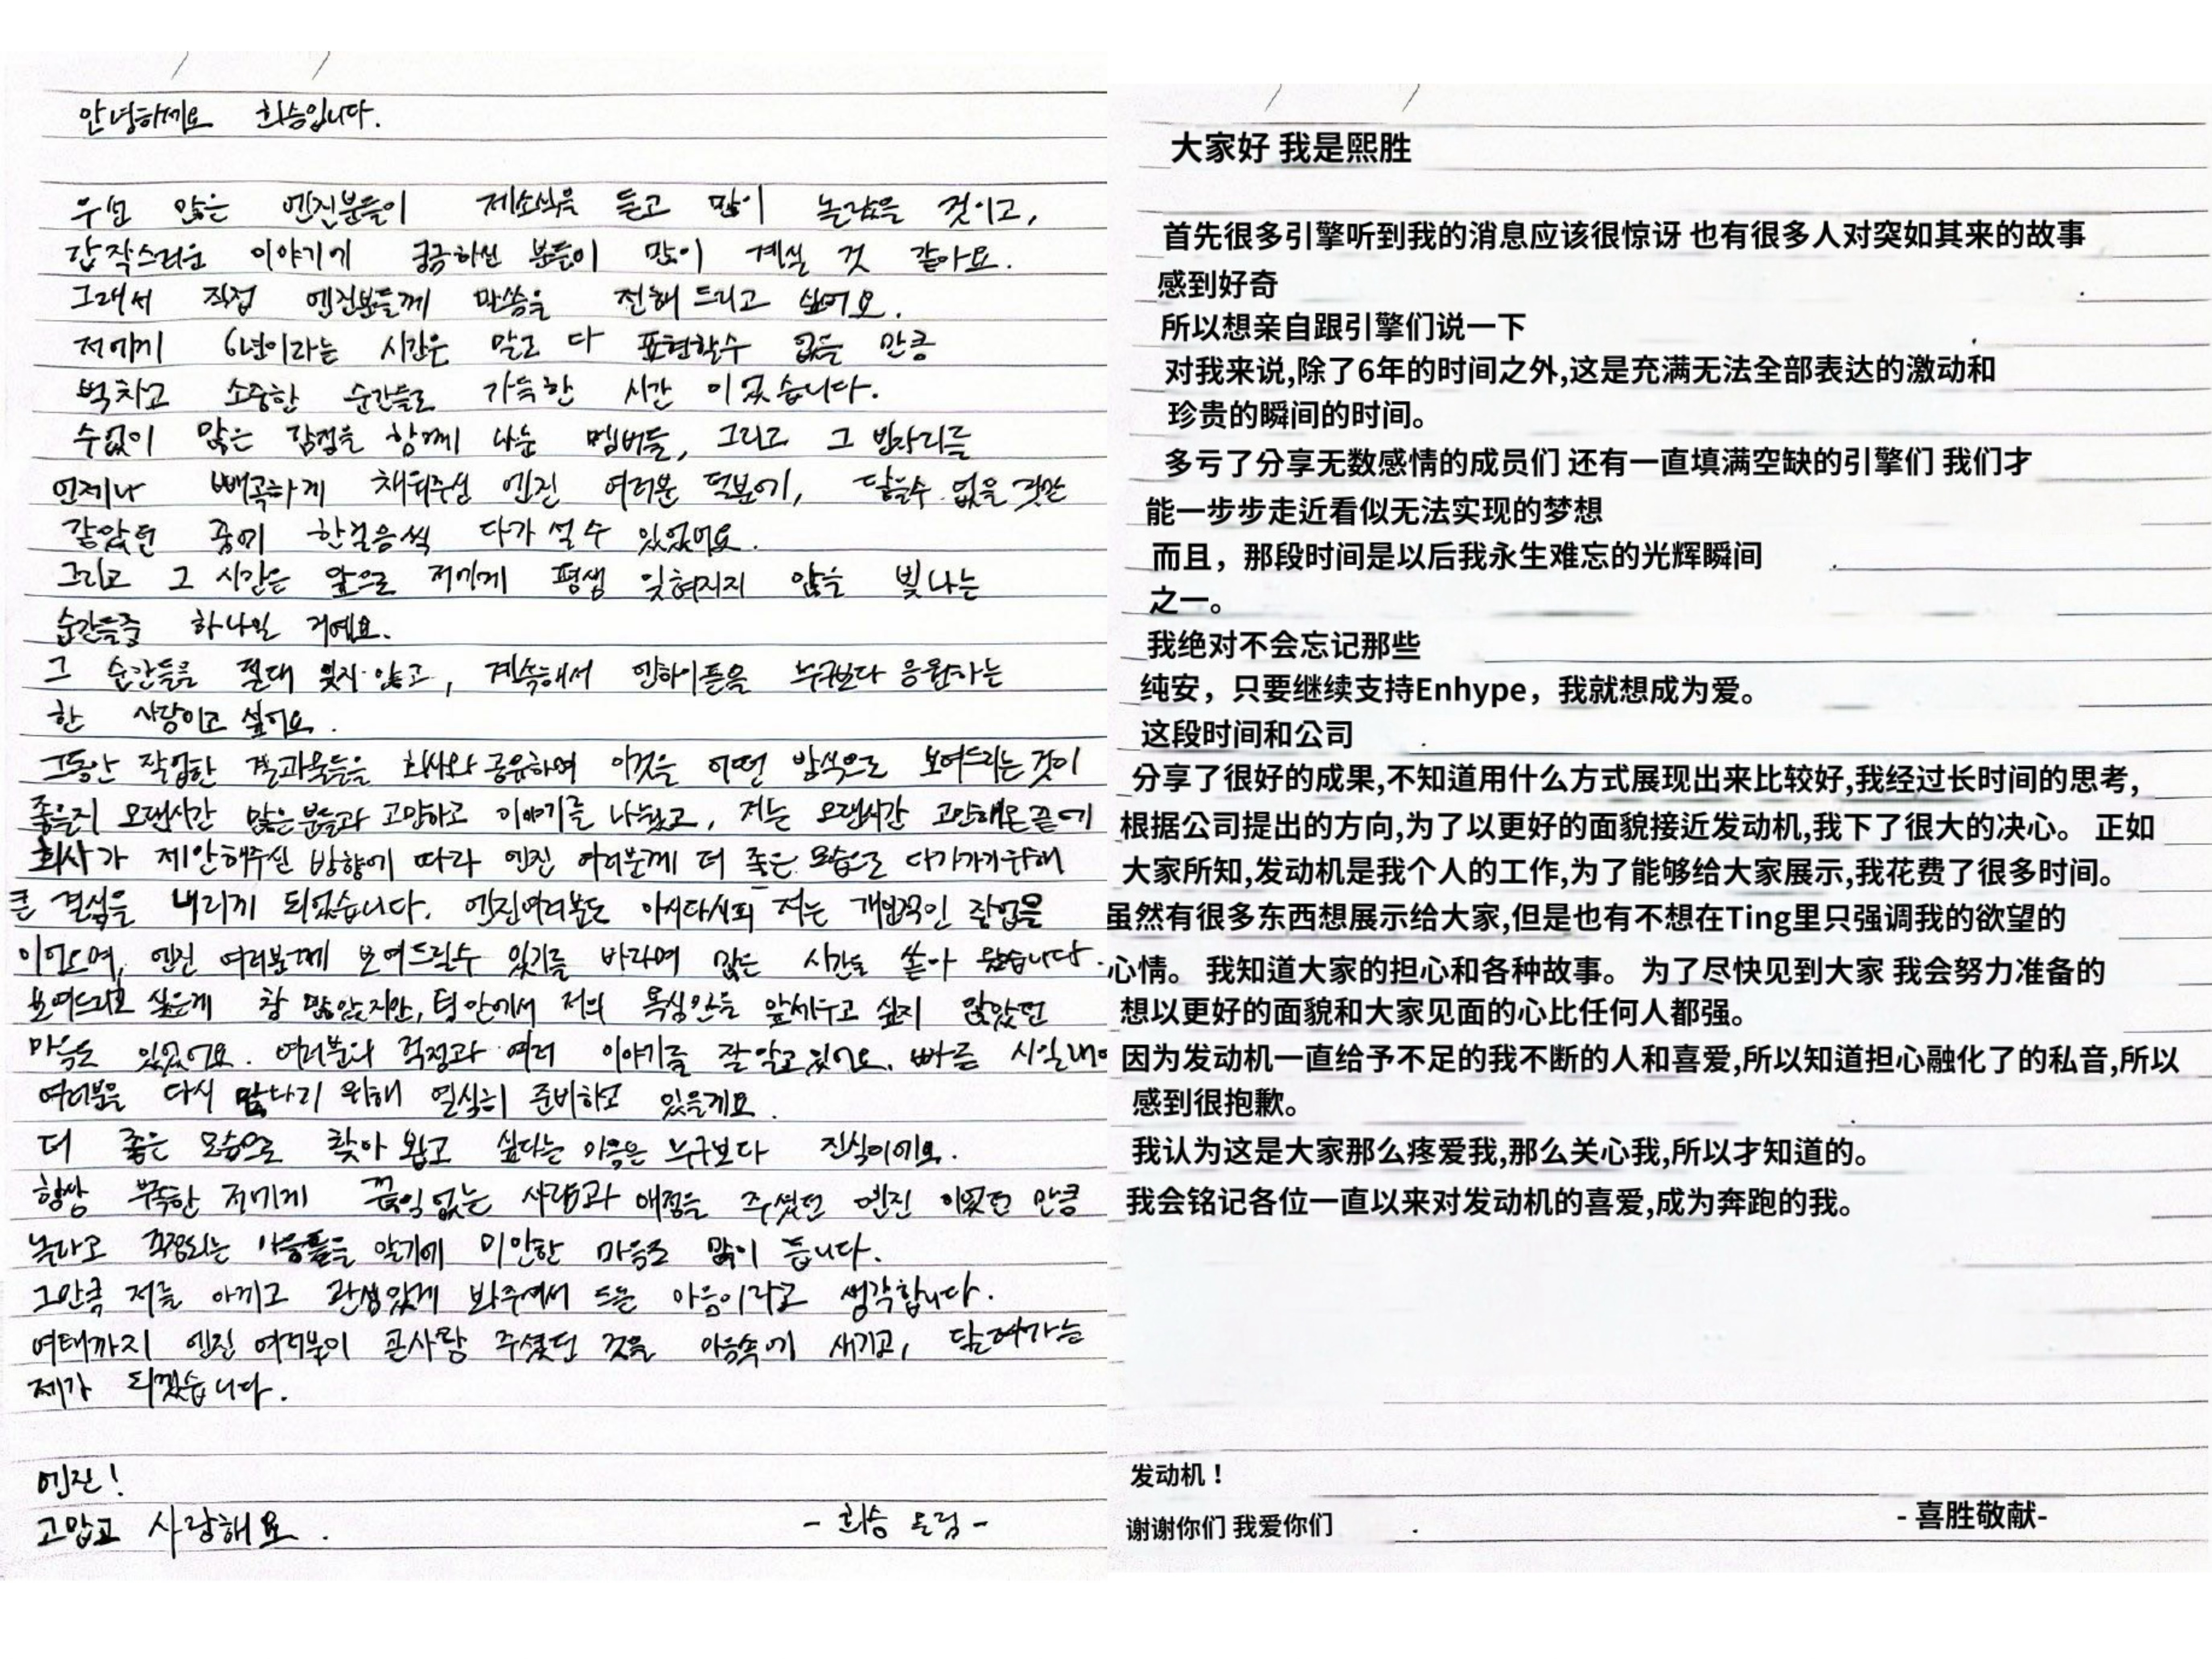 안녕하세요 희승입니다.
우선 많은 엔진분들이 제소식을 듣고 많이 놀랐을 것이고,
갑작스러운 이야기에 궁금하신 분들이 많이 계실 것 같아요.
그래서 직접 엔진분들께 말씀을 전해 드리고 싶어요.
저에게 6년이라는 시간은 말로 다 표현할수 없을 만큼
벅차고 소중한 순간들로 가득한 시간 이었습니다.
수없이 많은 감정을 함께 나눈 멤버들, 그리고 그 빈자리를
언제나 빼곡하게 채워주신 엔진 여러분 덕분에, 닿을수 없을 것만
같았던 꿈에 한걸음씩 다가 설 수 있었어요.
그리고 그 시간은 앞으로 저에게 평생 잊혀지지 않을 빛나는
순간들중 하나일 거예요.
그 순간들을 절대 잊지 않고, 계속해서 엔하이픈을 누구보다 응원하는
한 사람이고 싶어요.
그동안 작업한 결과물들을 회사와 공유하며 이것을 어떤 방식으로 보여드리는 것이
좋을지 오랜시간 많은분들과 고민하고 이야기를 나눴고, 저는 오랜시간 고민해온 끝에
회사가 제안해주신 방향에 따라 엔진 여러분께 더 좋은 모습으로 다가가기위해
큰 결심을 내리게 되었습니다. 엔진여러분도 아시다시피 저는 개인적인 작업을
이어오며, 엔진 여러분께 보여드릴수 있기를 바라며 많은 시간을 쏟아 왔습니다.
보여드리고 싶은게 참 많았지만, 팀 안에서 저의 욕심만을 앞세우고 싶지 않았던
마음도 있었어요. 여러분의 걱정과 여러 이야기를 잘 알고 있어요. 빠른 시일내에
여러분을 다시 만나기 위해 열심히 준비하고 있을게요.
더 좋은 모습으로 찾아 뵙고 싶다는 마음은 누구보다 진심이에요.
항상 부족한 저에게 끊임없는 사랑과 애정을 주셨던 엔진 이었던 만큼
놀라고 걱정되는 마음들을 알기에 미안한 마음도 많이 듭니다.
그만큼 저를 아끼고 관심있게 봐주셔서 드는 마음이라고 생각합니다.
여태까지 엔진 여러분이 큰사랑 주셨던 것을 마음속에 새기고, 달려가는
제가 되겠습니다.
엔진!
고맙고 사랑해요.
- 희승 드림 -
大家好 我是熙胜
首先很多引擎听到我的消息应该很惊讶 也有很多人对突如其来的故事
感到好奇
所以想亲自跟引擎们说一下
对我来说,除了6年的时间之外,这是充满无法全部表达的激动和
珍贵的瞬间的时间。
多亏了分享无数感情的成员们 还有一直填满空缺的引擎们 我们才
能一步步走近看似无法实现的梦想
而且，那段时间是以后我永生难忘的光辉瞬间
之一。
我绝对不会忘记那些
纯安，只要继续支持Enhype，我就想成为爱。
这段时间和公司
分享了很好的成果,不知道用什么方式展现出来比较好,我经过长时间的思考,
根据公司提出的方向,为了以更好的面貌接近发动机,我下了很大的决心。 正如
大家所知,发动机是我个人的工作,为了能够给大家展示,我花费了很多时间。
虽然有很多东西想展示给大家,但是也有不想在Ting里只强调我的欲望的
心情。 我知道大家的担心和各种故事。 为了尽快见到大家 我会努力准备的
想以更好的面貌和大家见面的心比任何人都强。
因为发动机一直给予不足的我不断的人和喜爱,所以知道担心融化了的私音,所以
感到很抱歉。
我认为这是大家那么疼爱我,那么关心我,所以才知道的。
我会铭记各位一直以来对发动机的喜爱,成为奔跑的我。
发动机！
谢谢你们 我爱你们
- 喜胜敬献-